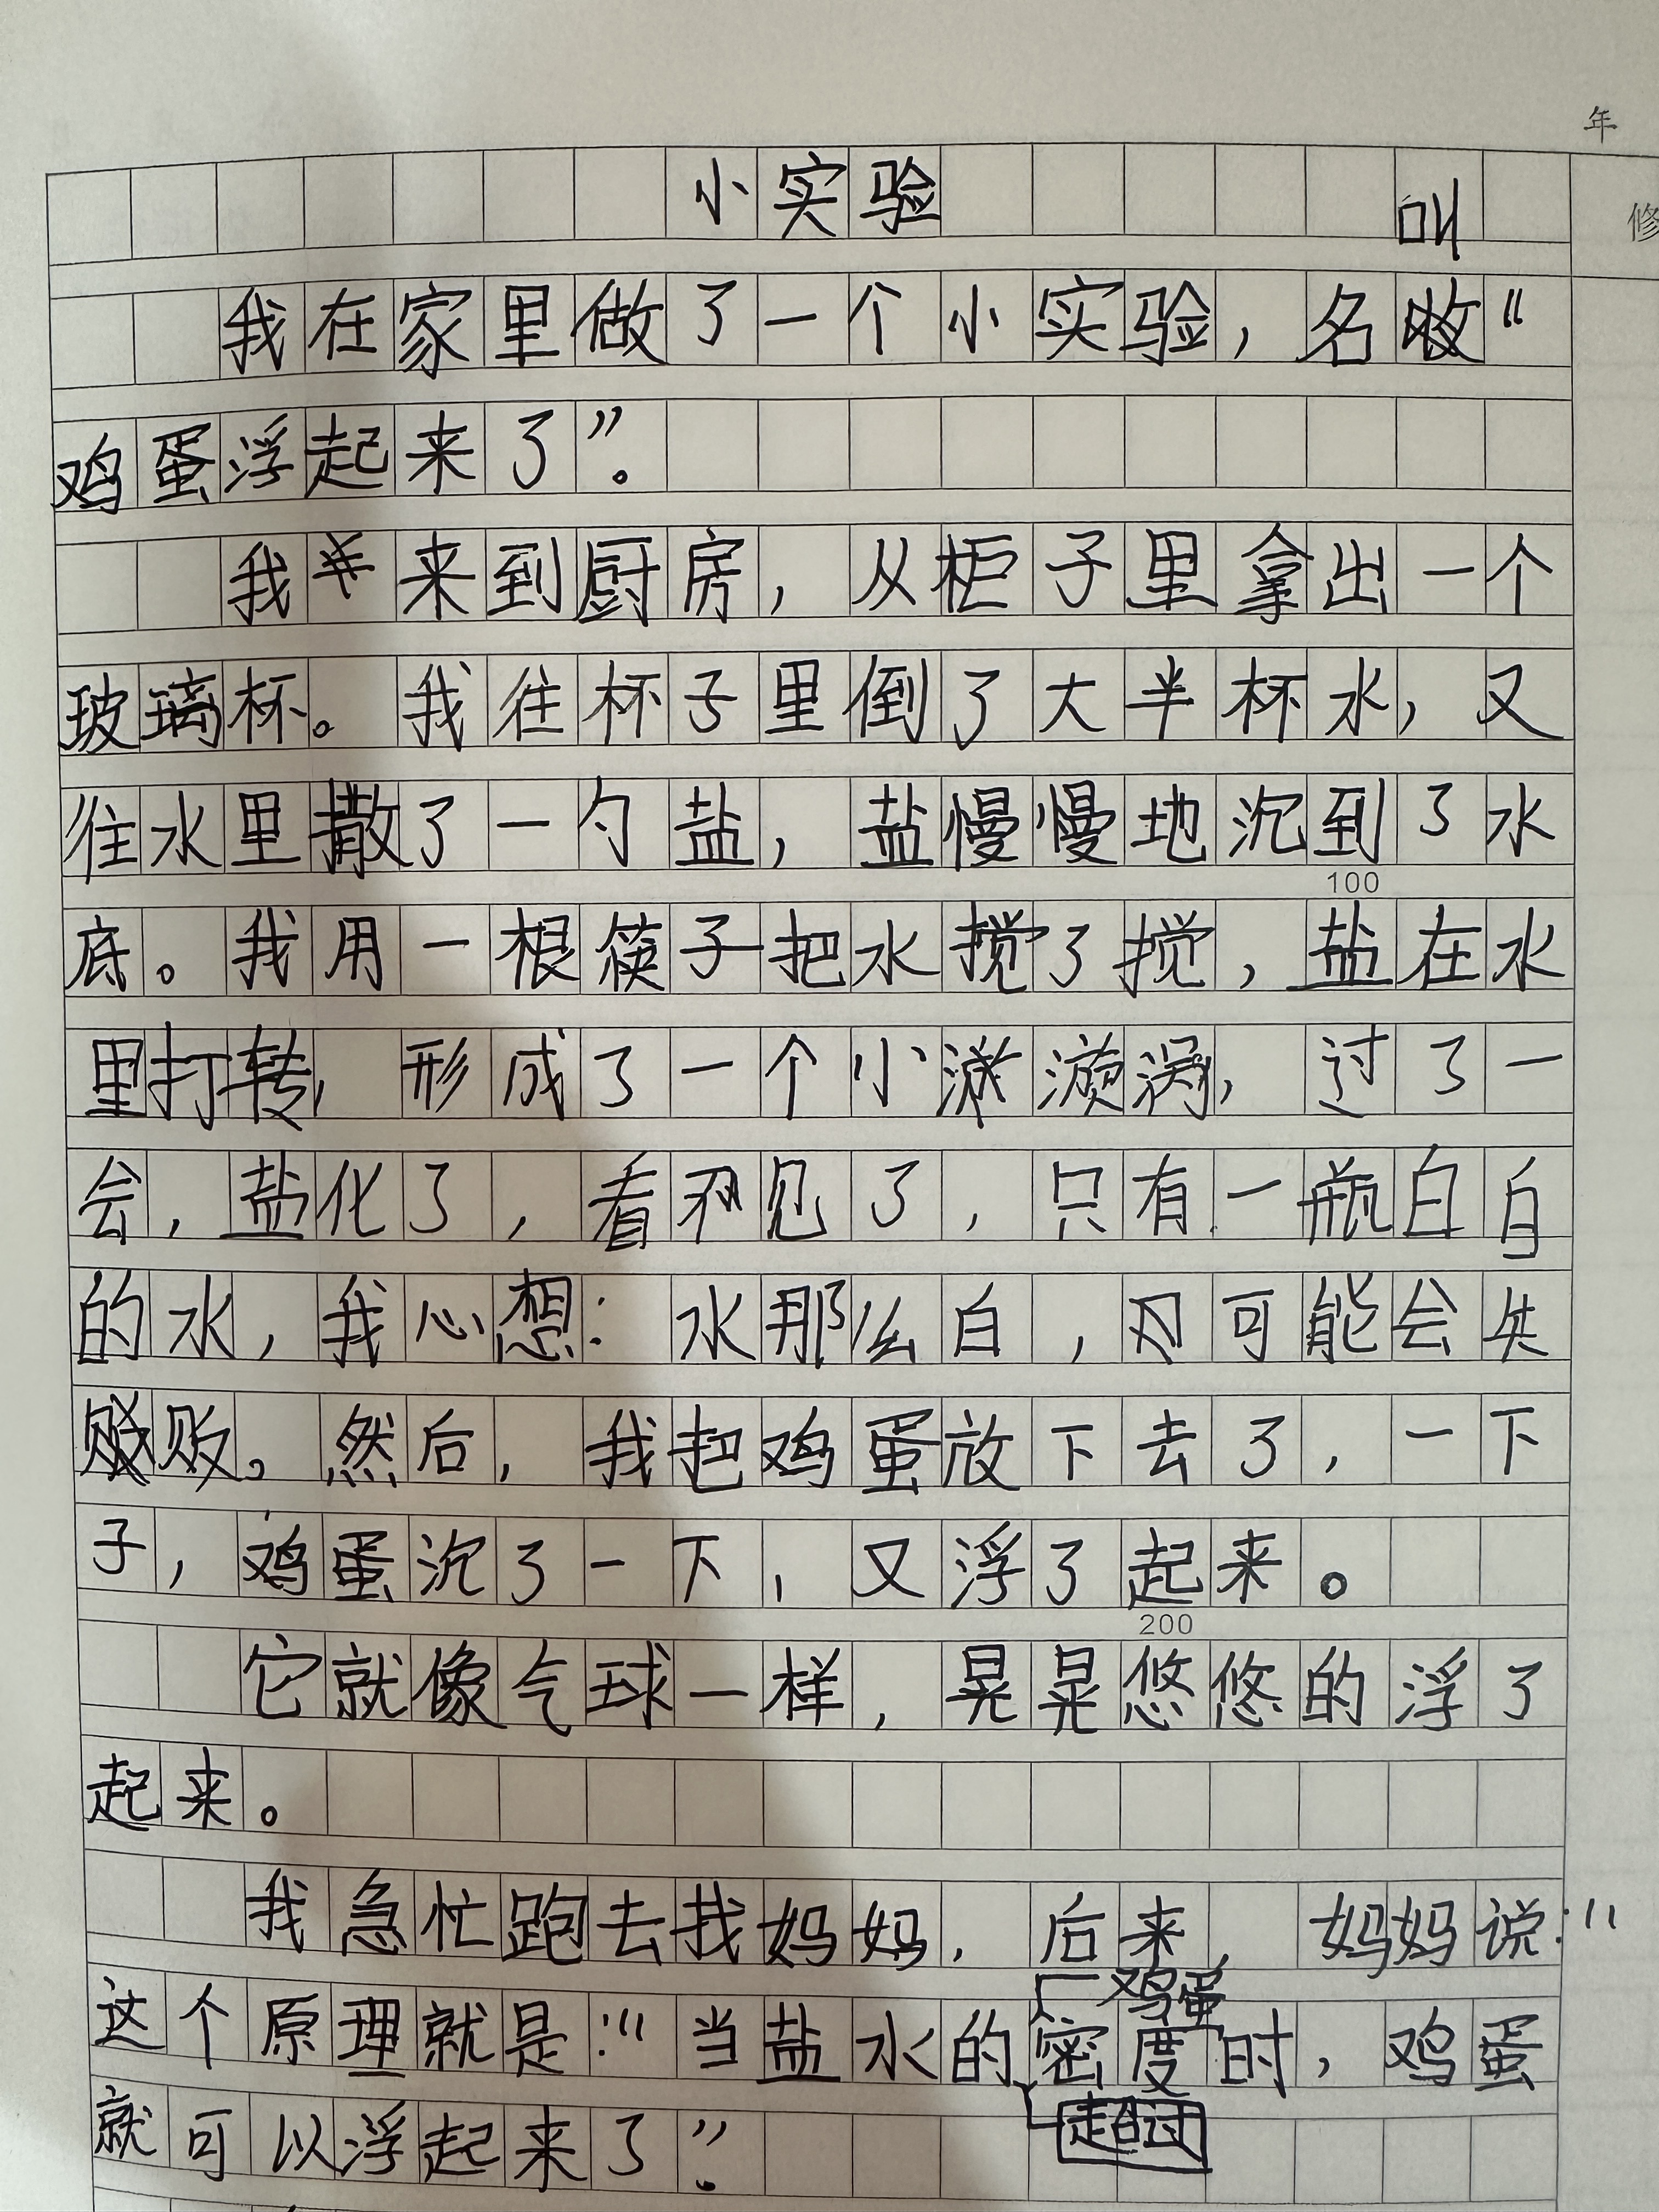 年
小实验
修
叫
我在家里做了一个小实验，名“
鸡蛋浮起来了”。
我来到厨房，从柜子里拿出一个
玻璃杯。我往杯子里倒了大半杯水，又
往水里撒了一勺盐，盐慢慢地沉到了水
100
底。我用一根筷子把水搅了搅，盐在水
里打转，形成了一个小漩涡，过了一
会，盐化了，看不见了，只有一瓶白白
的水，我心想：水那么白，可能会失
败。然后，我把鸡蛋放下去了，一下
子，鸡蛋沉了一下，又浮了起来。
200
它就像气球一样，晃晃悠悠的浮了
起来。
我急忙跑去找妈妈，后来，妈妈说：“
鸡蛋
这个原理就是：“当盐水的密度时，鸡蛋
超过
就可以浮起来了”。